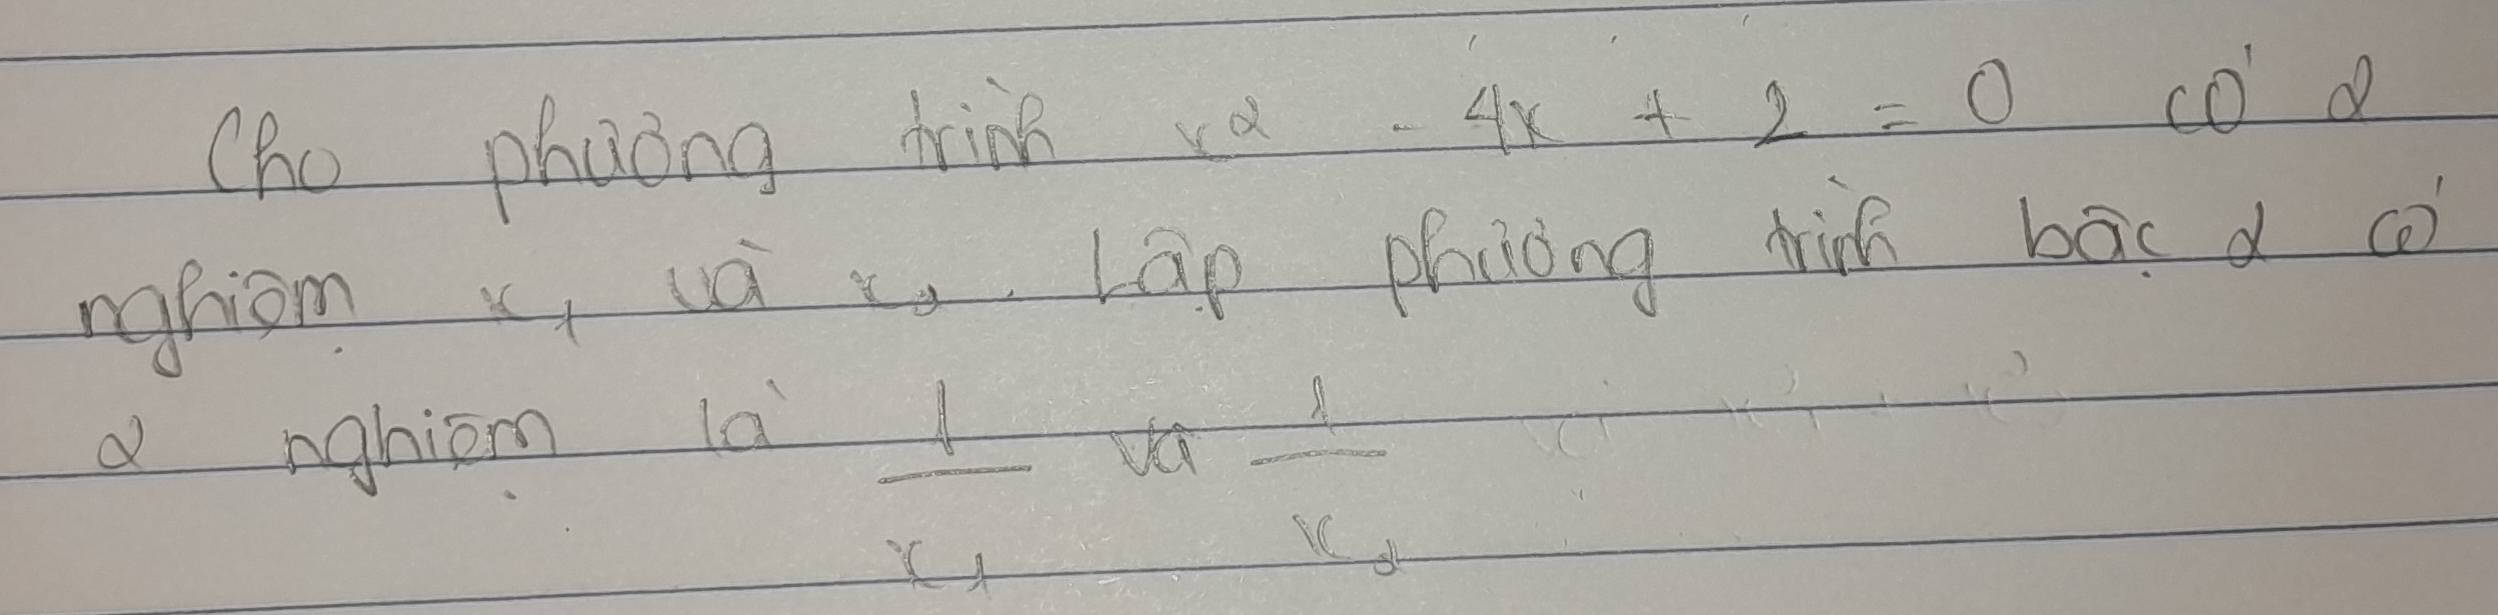 Cho phương trình x² - 4x + 2 = 0 có 2
nghiệm x₁ và x₂. Lập phương trình bậc 2 có
2 nghiệm là 1/x₁ và 1/x₂